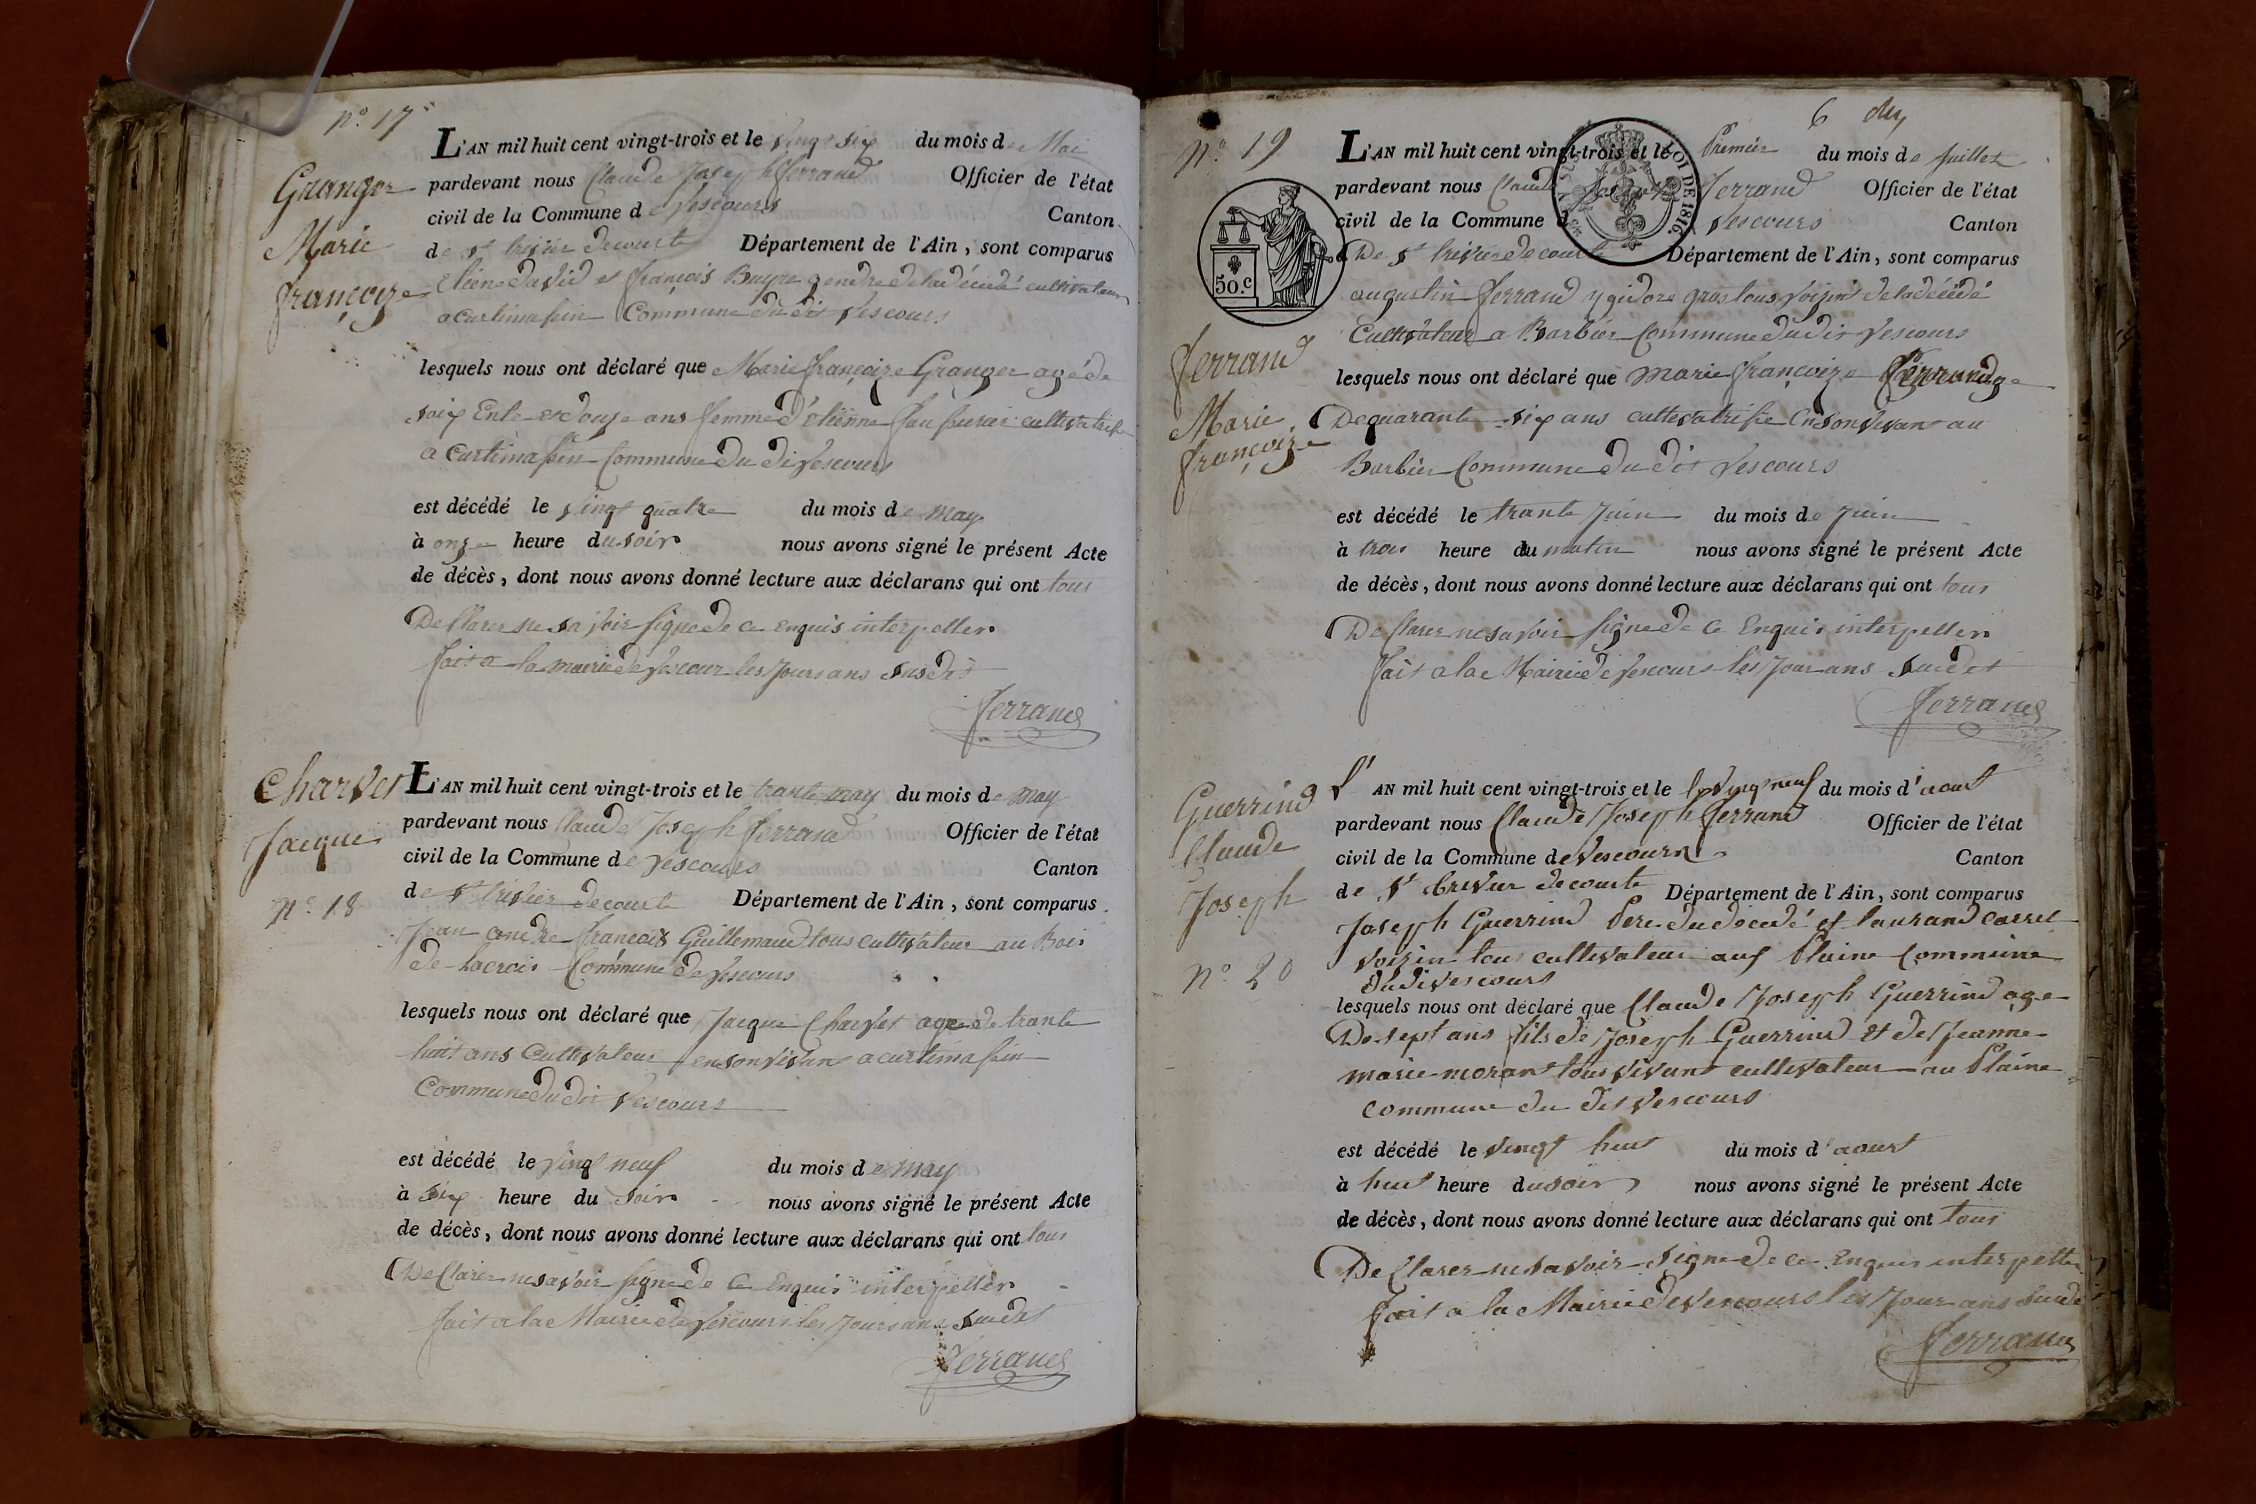 n° 17
Granger
Marie
françoize
L'AN mil huit cent vingt-trois et le vingt six du mois de Mai
pardevant nous Claude Joseph ferrand Officier de l'état
civil de la Commune de vescours Canton
de st trivier decourte Département de l'Ain, sont comparus
et françois gendre de la décédé cultivateur
a curtimassin Commune du dit vescours
lesquels nous ont déclaré que Marie françoize Granger agé de
soix Ente et douze ans femme d'étienne cultivatrisse
a curtimassin Commune du di vescours
est décédé le vingt quatre du mois de may
à onze heure du soir nous avons signé le présent Acte
de décès, dont nous avons donné lecture aux déclarans qui ont tous
De Clarer ne savoir signe de ce enquis interpeller
fait a la mairie de vescour les jours ans susdit
ferrand
Charvet
Jacque
n° 18
L'AN mil huit cent vingt-trois et le trante may du mois de may
pardevant nous Claude Joseph ferrand Officier de l'état
civil de la Commune de vescours Canton
de st trivier decourte Département de l'Ain, sont comparus
Jean andre francois Guillemaud tous cultivateur au Bois
de Lacroix Commune de vescours
lesquels nous ont déclaré que Jacque Charvet age de trante
huit ans Cultivateur en son vivant a curtimassin
Commune du dit vescours
est décédé le vingt neuf du mois de may
à six heure du soir nous avons signé le présent Acte
de décès, dont nous avons donné lecture aux déclarans qui ont tous
De Clarer ne savoir signe de ce Enquis interpeller
fait a la Mairie de vescours les jours ans susdit
ferrand
6
n° 19
50.c
LOI DE 1816
ferrand
Marie
françoize
L'AN mil huit cent vingt-trois et le Premier du mois de juillet
pardevant nous Claude Joseph ferrand Officier de l'état
civil de la Commune de vescours Canton
De st trivier de courte Département de l'Ain, sont comparus
augustin ferrand gros tous voizin de la décédé
Cultivateur a Barbier Commune du dit vescours
lesquels nous ont déclaré que marie françoize ferrand age
De quarante six ans cultivatrisse en son vivant au
Barbier Commune du dit vescours
est décédé le trante juin du mois de juin
à trois heure du matin nous avons signé le présent Acte
de décès, dont nous avons donné lecture aux déclarans qui ont tous
De Clarer ne savoir signe de ce Enquis interpeller
fait a la Mairie de vescours les jour ans susdit
ferrand
Guerrind
Claude
Joseph
n° 20
L'AN mil huit cent vingt-trois et le vingt neuf du mois d'aout
pardevant nous Claude Joseph ferrand Officier de l'état
civil de la Commune de vescours Canton
de st trivier decourte Département de l'Ain, sont comparus
Joseph Guerrind Pere du décedé et laurand carrel
voizin tous cultivateur aux Plaine Commune
du di vescours
lesquels nous ont déclaré que Claude Joseph Guerrind age
De sept ans fils de Joseph Guerrind et de jeanne
marie morant tous vivant cultivateur au Plaine
commune du dit vescours
est décédé le vingt huit du mois d'aout
à huit heure du soir nous avons signé le présent Acte
de décès, dont nous avons donné lecture aux déclarans qui ont tous
De Clarer ne savoir signe de ce Enquis interpeller
fait a la Mairie de vescours les jour ans susdit
ferrand